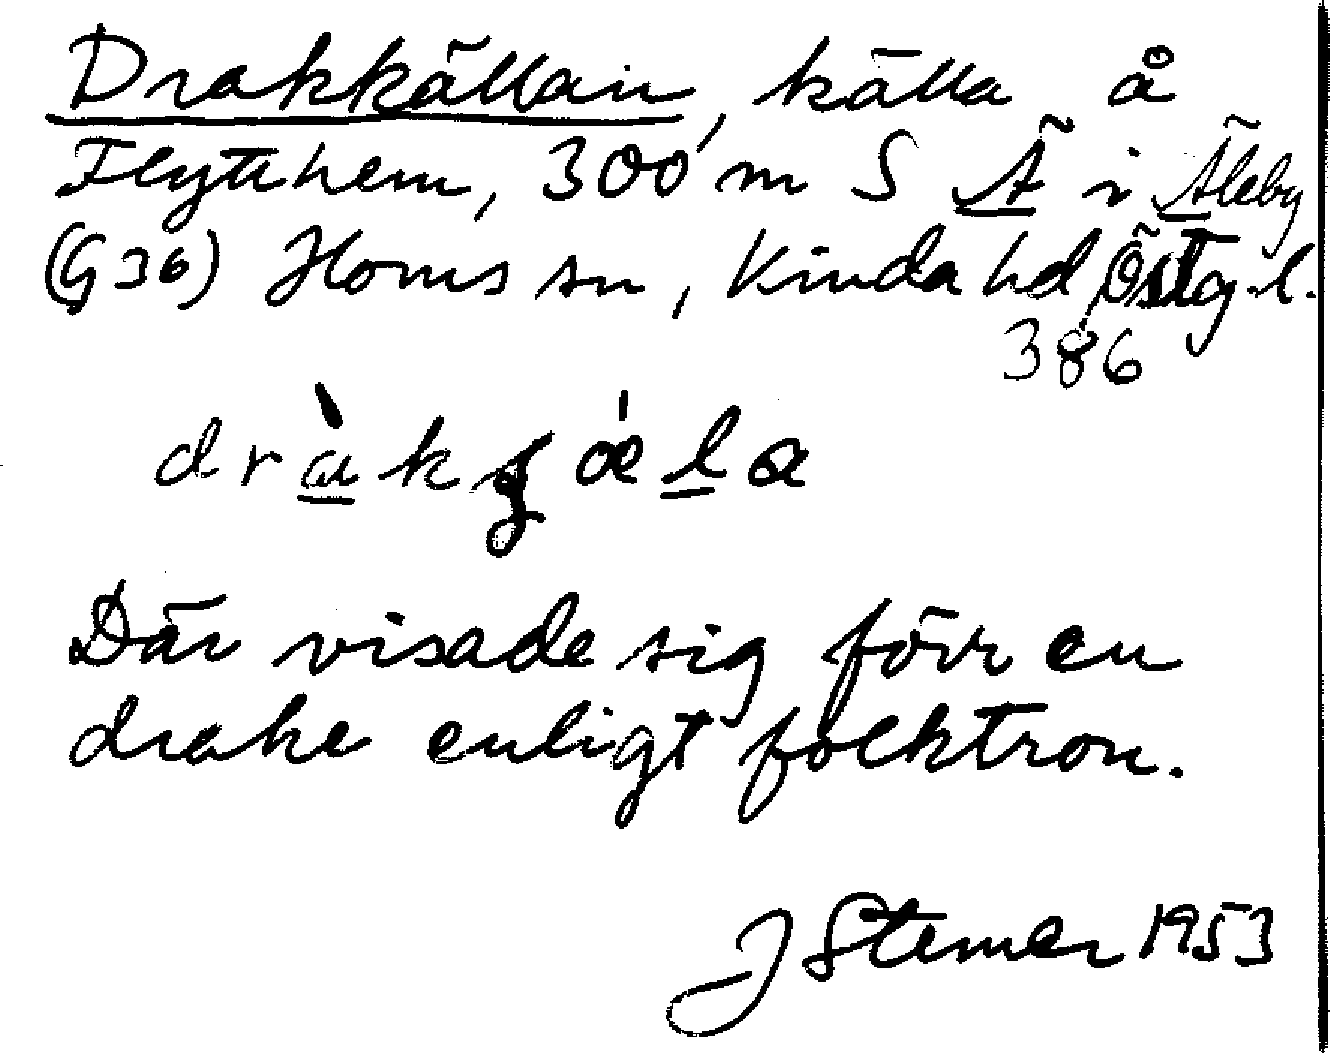 Drakkällan, källa å
Flytthem, 300 m S Ä i Äleby
(G 36) Horns sn, Kinda hd Östg. l.
386
dràkɟǽla
Där visade sig förr en
drake enligt folktron.
J Stemer 1953